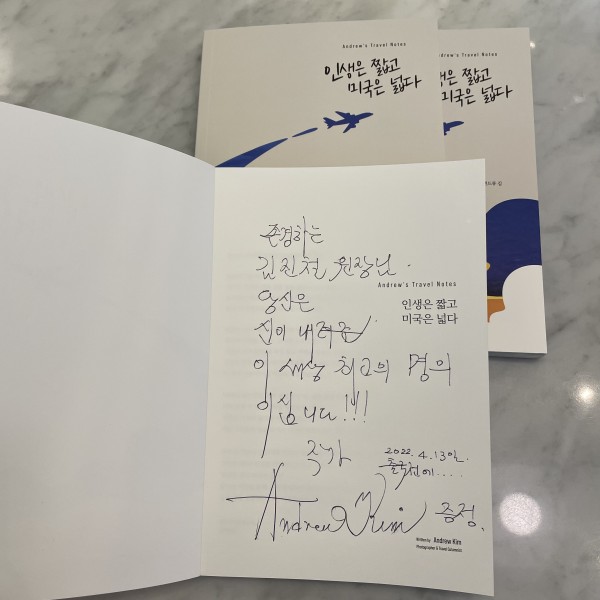 Andrew's Travel Notes
인생은 짧고
미국은 넓다
Andrew's Travel Notes
인생은 짧고
미국은 넓다
존경하는
김진철 원장님.
Andrew's Travel Notes
인생은 짧고
미국은 넓다
당신은
신이 내려준
이 세상 최고의 명의
이십니다!!!
작가
2022. 4. 13일.
출국전에.....
Andrew Kim 증정.
Written by Andrew Kim
Photographer & Travel Columnist